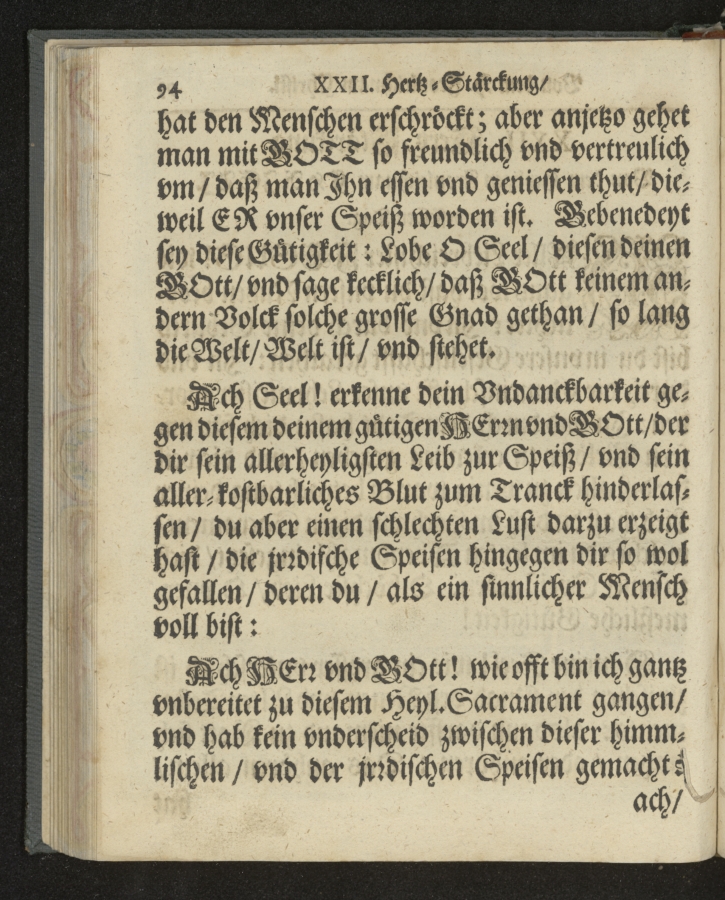 94 XXII. Hertz-Stärckung/
hat den Menschen erschröckt; aber anjetzo gehet
man mit GOTT so freundlich vnd vertreulich
vm / daß man Jhn essen vnd geniessen thut/ die-
weil ER vnser Speiß worden ist. Gebenedeyt
sey diese Gütigkeit : Lobe O Seel / diesen deinen
GOtt/ vnd sage kecklich/ daß GOtt keinem an-
dern Volck solche grosse Gnad gethan / so lang
die Welt/ Welt ist/ vnd stehet.
Ach Seel! erkenne dein Vndanckbarkeit ge-
gen diesem deinem gütigen HErrn vnd GOtt/ der
dir sein allerheyligsten Leib zur Speiß / vnd sein
aller-kostbarliches Blut zum Tranck hinderlas-
sen / du aber einen schlechten Lust darzu erzeigt
hast / die jrrdische Speisen hingegen dir so wol
gefallen / deren du / als ein sinnlicher Mensch
voll bist :
Ach HErr vnd GOtt! wie offt bin ich gantz
vnbereitet zu diesem Heyl. Sacrament gangen/
vnd hab kein vnderscheid zwischen dieser himm-
lischen / vnd der jrrdischen Speisen gemacht :
ach/